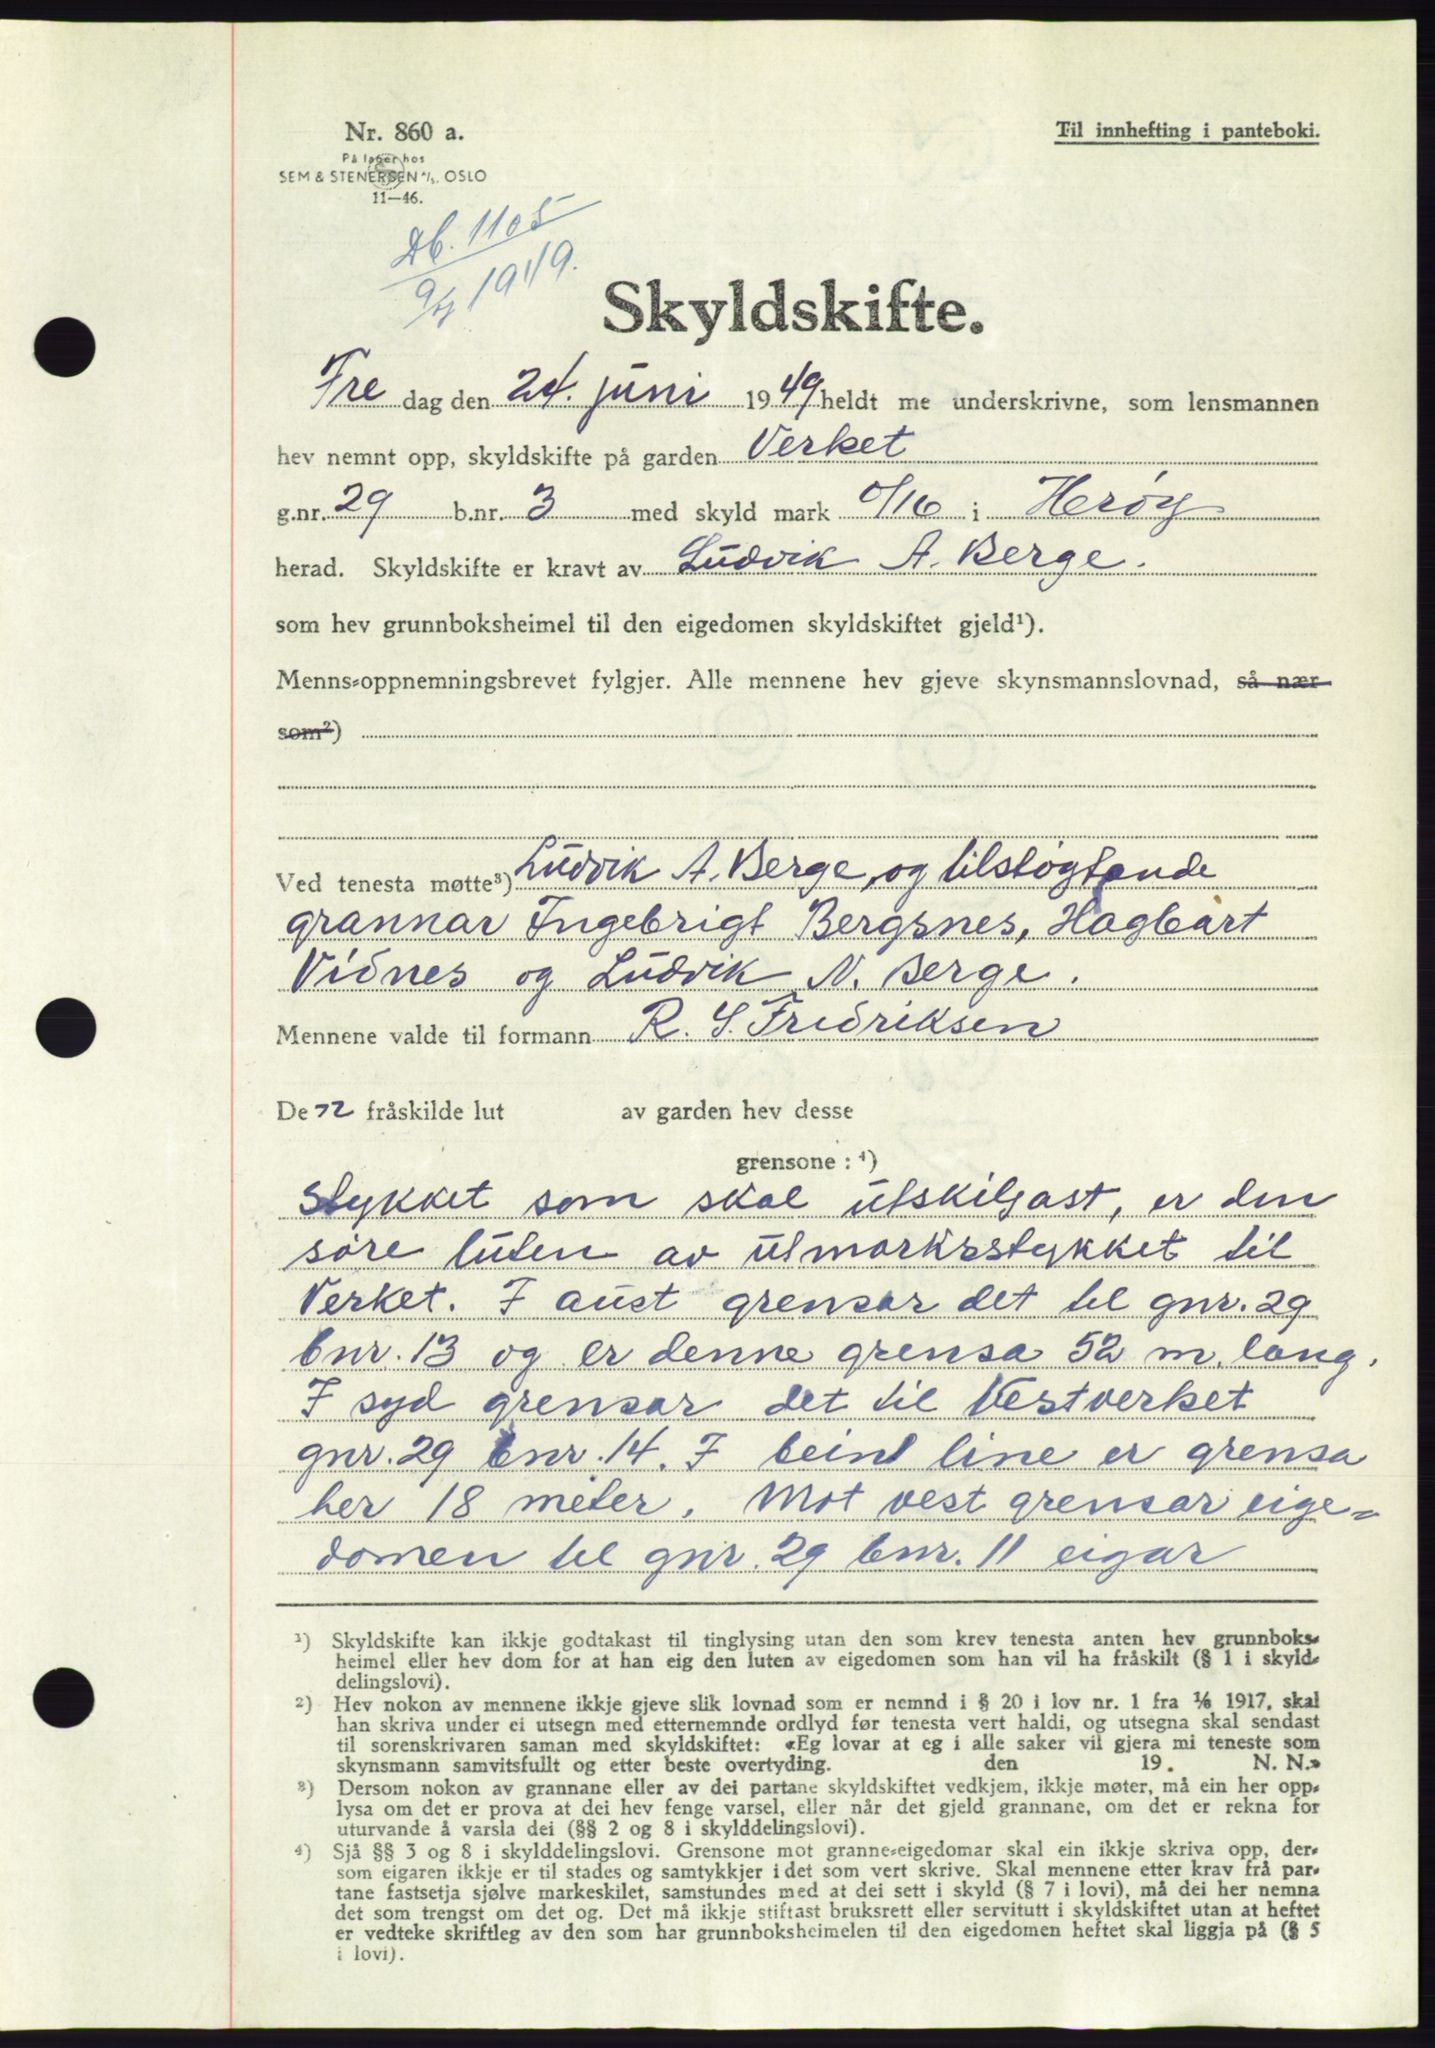 Nr. 860 a.
Til innhefting i panteboki.
På lager hos
SEM & STENERSEN A/S. OSLO
11—46.
Db. 1105
9/7 1949.
Skyldskifte.
Fre dag den 24. juni 1949 heldt me underskrivne, som lensmannen
hev nemnt opp, skyldskifte på garden Verket
g.nr. 29 b.nr. 3 med skyld mark 0/16 i Herøy
herad. Skyldskifte er kravt av Ludvik A. Berge.
som hev grunnboksheimel til den eigedomen skyldskiftet gjeld¹).
Menns-oppnemningsbrevet fylgjer. Alle mennene hev gjeve skynsmannslovnad, så nær
som²)
Ved tenesta møtte³) Ludvik A. Berge, og tilstøytande
grannar Ingebrigt Bergsnes, Hagbart
Vidnes og Ludvik N. Berge.
Mennene valde til formann R. S. Fredriksen
De n fråskilde lut av garden hev desse
grensone: ⁴)
Stykket som skal utskiljast, er den
søre luten av utmarksstykket til
Verket. I aust grensar det til gnr. 29
bnr. 13 og er denne grensa 52 m. lang.
I syd grensar det til Vestverket
gnr. 29 bnr. 14. I beint line er grensa
her 18 meter. Mot vest grensar eige-
domen til gnr. 29 bnr. 11 eigar
¹) Skyldskifte kan ikkje godtakast til tinglysing utan den som krev tenesta anten hev grunnboks-
heimel eller hev dom for at han eig den luten av eigedomen som han vil ha fråskilt (§ 1 i skyld-
delingslovi).
²) Hev nokon av mennene ikkje gjeve slik lovnad som er nemnd i § 20 i lov nr. 1 fra 1/6 1917, skal
han skriva under ei utsegn med etternemnde ordlyd før tenesta vert haldi, og utsegna skal sendast
til sorenskrivaren saman med skyldskiftet: «Eg lovar at eg i alle saker vil gjera mi teneste som
skynsmann samvitsfullt og etter beste overtyding. den 19 . N. N.»
³) Dersom nokon av grannane eller av dei partane skyldskiftet vedkjem, ikkje møter, må ein her opp-
lysa om det er prova at dei hev fenge varsel, eller når det gjeld grannane, om det er rekna for
uturvande å varsla dei (§§ 2 og 8 i skylddelingslovi).
⁴) Sjå §§ 3 og 8 i skylddelingslovi. Grensone mot granne-eigedomar skal ein ikkje skriva opp, der-
som eigaren ikkje er til stades og samtykkjer i det som vert skrive. Skal mennene etter krav frå par-
tane fastsetja sjølve markeskilet, samstundes med at dei sett i skyld (§ 7 i lovi), må dei her nemna
det som trengst om det og. Det må ikkje stiftast bruksrett eller servitutt i skyldskiftet utan at heftet
er vedteke skriftleg av den som har grunnboksheimelen til den eigedomen heftet skal liggja på (§ 5
i lovi).